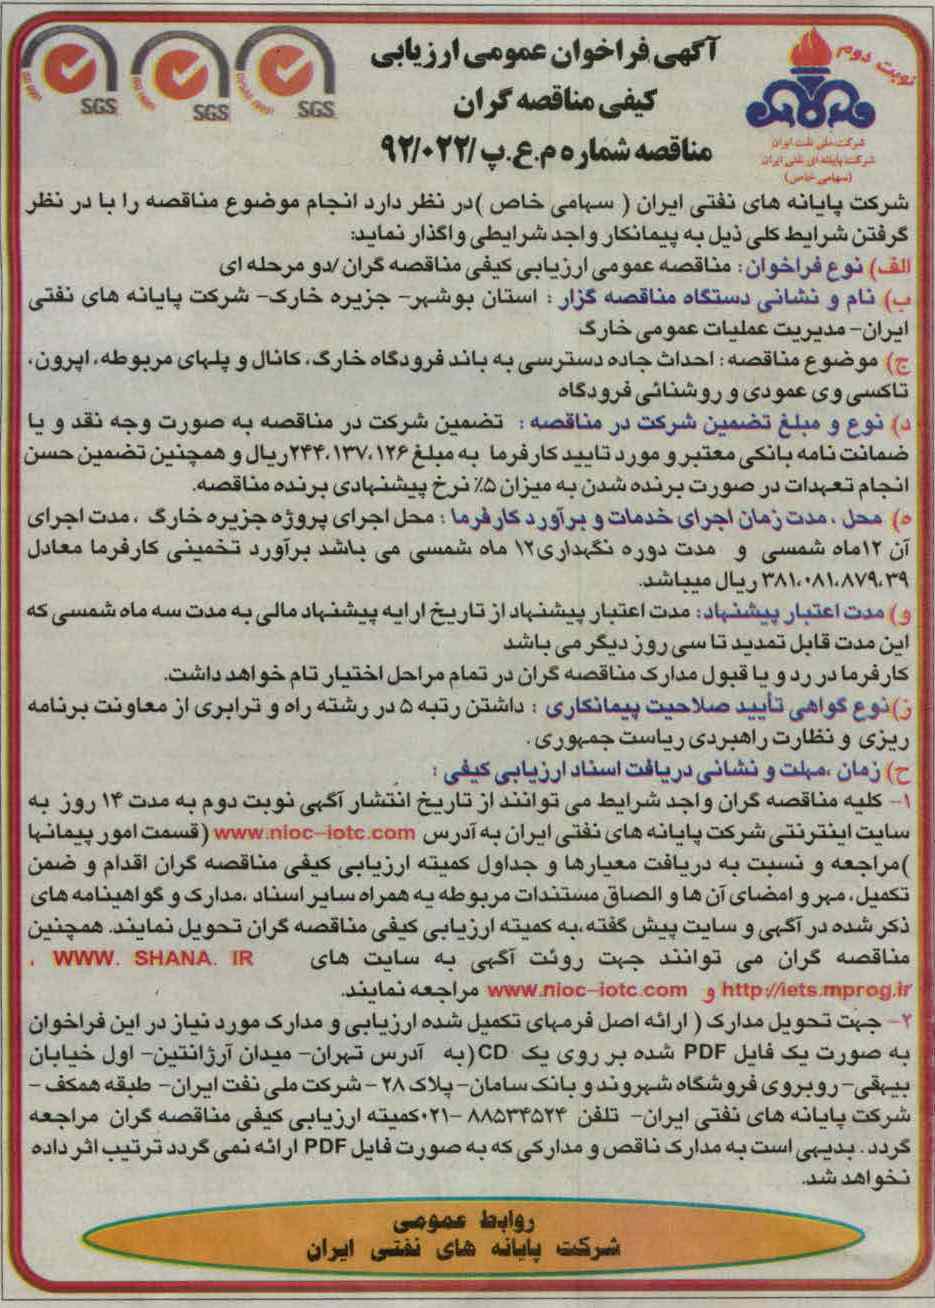 نوبت دوم
آگهی فراخوان عمومی ارزیابی
کیفی مناقصه گران
مناقصه شماره م.ع.پ/۹۲/۰۲۲
شرکت ملی نفت ایران
شرکت پایانه های نفتی ایران
(سهامی خاص)
SGS
SGS
SGS
شرکت پایانه های نفتی ایران ( سهامی خاص )در نظر دارد انجام موضوع مناقصه را با در نظر
گرفتن شرایط کلی ذیل به پیمانکار واجد شرایطی واگذار نماید:
الف) نوع فراخوان: مناقصه عمومی ارزیابی کیفی مناقصه گران /دو مرحله ای
ب) نام و نشانی دستگاه مناقصه گزار : استان بوشهر- جزیره خارک- شرکت پایانه های نفتی
ایران- مدیریت عملیات عمومی خارگ
ج) موضوع مناقصه: احداث جاده دسترسی به باند فرودگاه خارگ، کانال و پلهای مربوطه، اپرون،
تاکسی وی عمودی و روشنائی فرودگاه
د) نوع و مبلغ تضمین شرکت در مناقصه : تضمین شرکت در مناقصه به صورت وجه نقد و یا
ضمانت نامه بانکی معتبر و مورد تایید کارفرما به مبلغ ۲۴۴،۱۳۷،۱۲۶ریال و همچنین تضمین حسن
انجام تعهدات در صورت برنده شدن به میزان ۵٪ نرخ پیشنهادی برنده مناقصه.
ه) محل ، مدت زمان اجرای خدمات و برآورد کارفرما : محل اجرای پروژه جزیره خارگ ، مدت اجرای
آن ۱۲ماه شمسی و مدت دوره نگهداری۱۲ ماه شمسی می باشد برآورد تخمینی کارفرما معادل
۳۸۱،۰۸۱،۸۷۹،۳۹ ریال میباشد.
و) مدت اعتبار پیشنهاد: مدت اعتبار پیشنهاد از تاریخ ارایه پیشنهاد مالی به مدت سه ماه شمسی که
این مدت قابل تمدید تا سی روز دیگر می باشد
کارفرما در رد و یا قبول مدارک مناقصه گران در تمام مراحل اختیار تام خواهد داشت.
ز)نوع گواهی تأیید صلاحیت پیمانکاری : داشتن رتبه ۵ در رشته راه و ترابری از معاونت برنامه
ریزی و نظارت راهبردی ریاست جمهوری .
ح) زمان ،مهلت و نشانی دریافت اسناد ارزیابی کیفی :
۱- کلیه مناقصه گران واجد شرایط می توانند از تاریخ انتشار آگهی نوبت دوم به مدت ۱۴ روز به
سایت اینترنتی شرکت پایانه های نفتی ایران به آدرس www.nioc-iotc.com (قسمت امور پیمانها
)مراجعه و نسبت به دریافت معیارها و جداول کمیته ارزیابی کیفی مناقصه گران اقدام و ضمن
تکمیل، مهر و امضای آن ها و الصاق مستندات مربوطه به همراه سایر اسناد ،مدارک و گواهینامه های
ذکر شده در آگهی و سایت پیش گفته،به کمیته ارزیابی کیفی مناقصه گران تحویل نمایند. همچنین
مناقصه گران می توانند جهت روئت آگهی به سایت های WWW. SHANA. IR ،
http://iets.mprog.ir و www.nioc-iotc.com مراجعه نمایند.
۲- جهت تحویل مدارک ( ارائه اصل فرمهای تکمیل شده ارزیابی و مدارک مورد نیاز در این فراخوان
به صورت یک فایل PDF شده بر روی یک CD(به آدرس تهران- میدان آرژانتین- اول خیابان
بیهقی- روبروی فروشگاه شهروند و بانک سامان- پلاک ۲۸ - شرکت ملی نفت ایران- طبقه همکف -
شرکت پایانه های نفتی ایران- تلفن ۸۸۵۳۴۵۲۴ -۰۲۱کمیته ارزیابی کیفی مناقصه گران مراجعه
گردد . بدیهی است به مدارک ناقص و مدارکی که به صورت فایل PDF ارائه نمی گردد ترتیب اثر داده
نخواهد شد.
روابط عمومی
شرکت پایانه های نفتی ایران